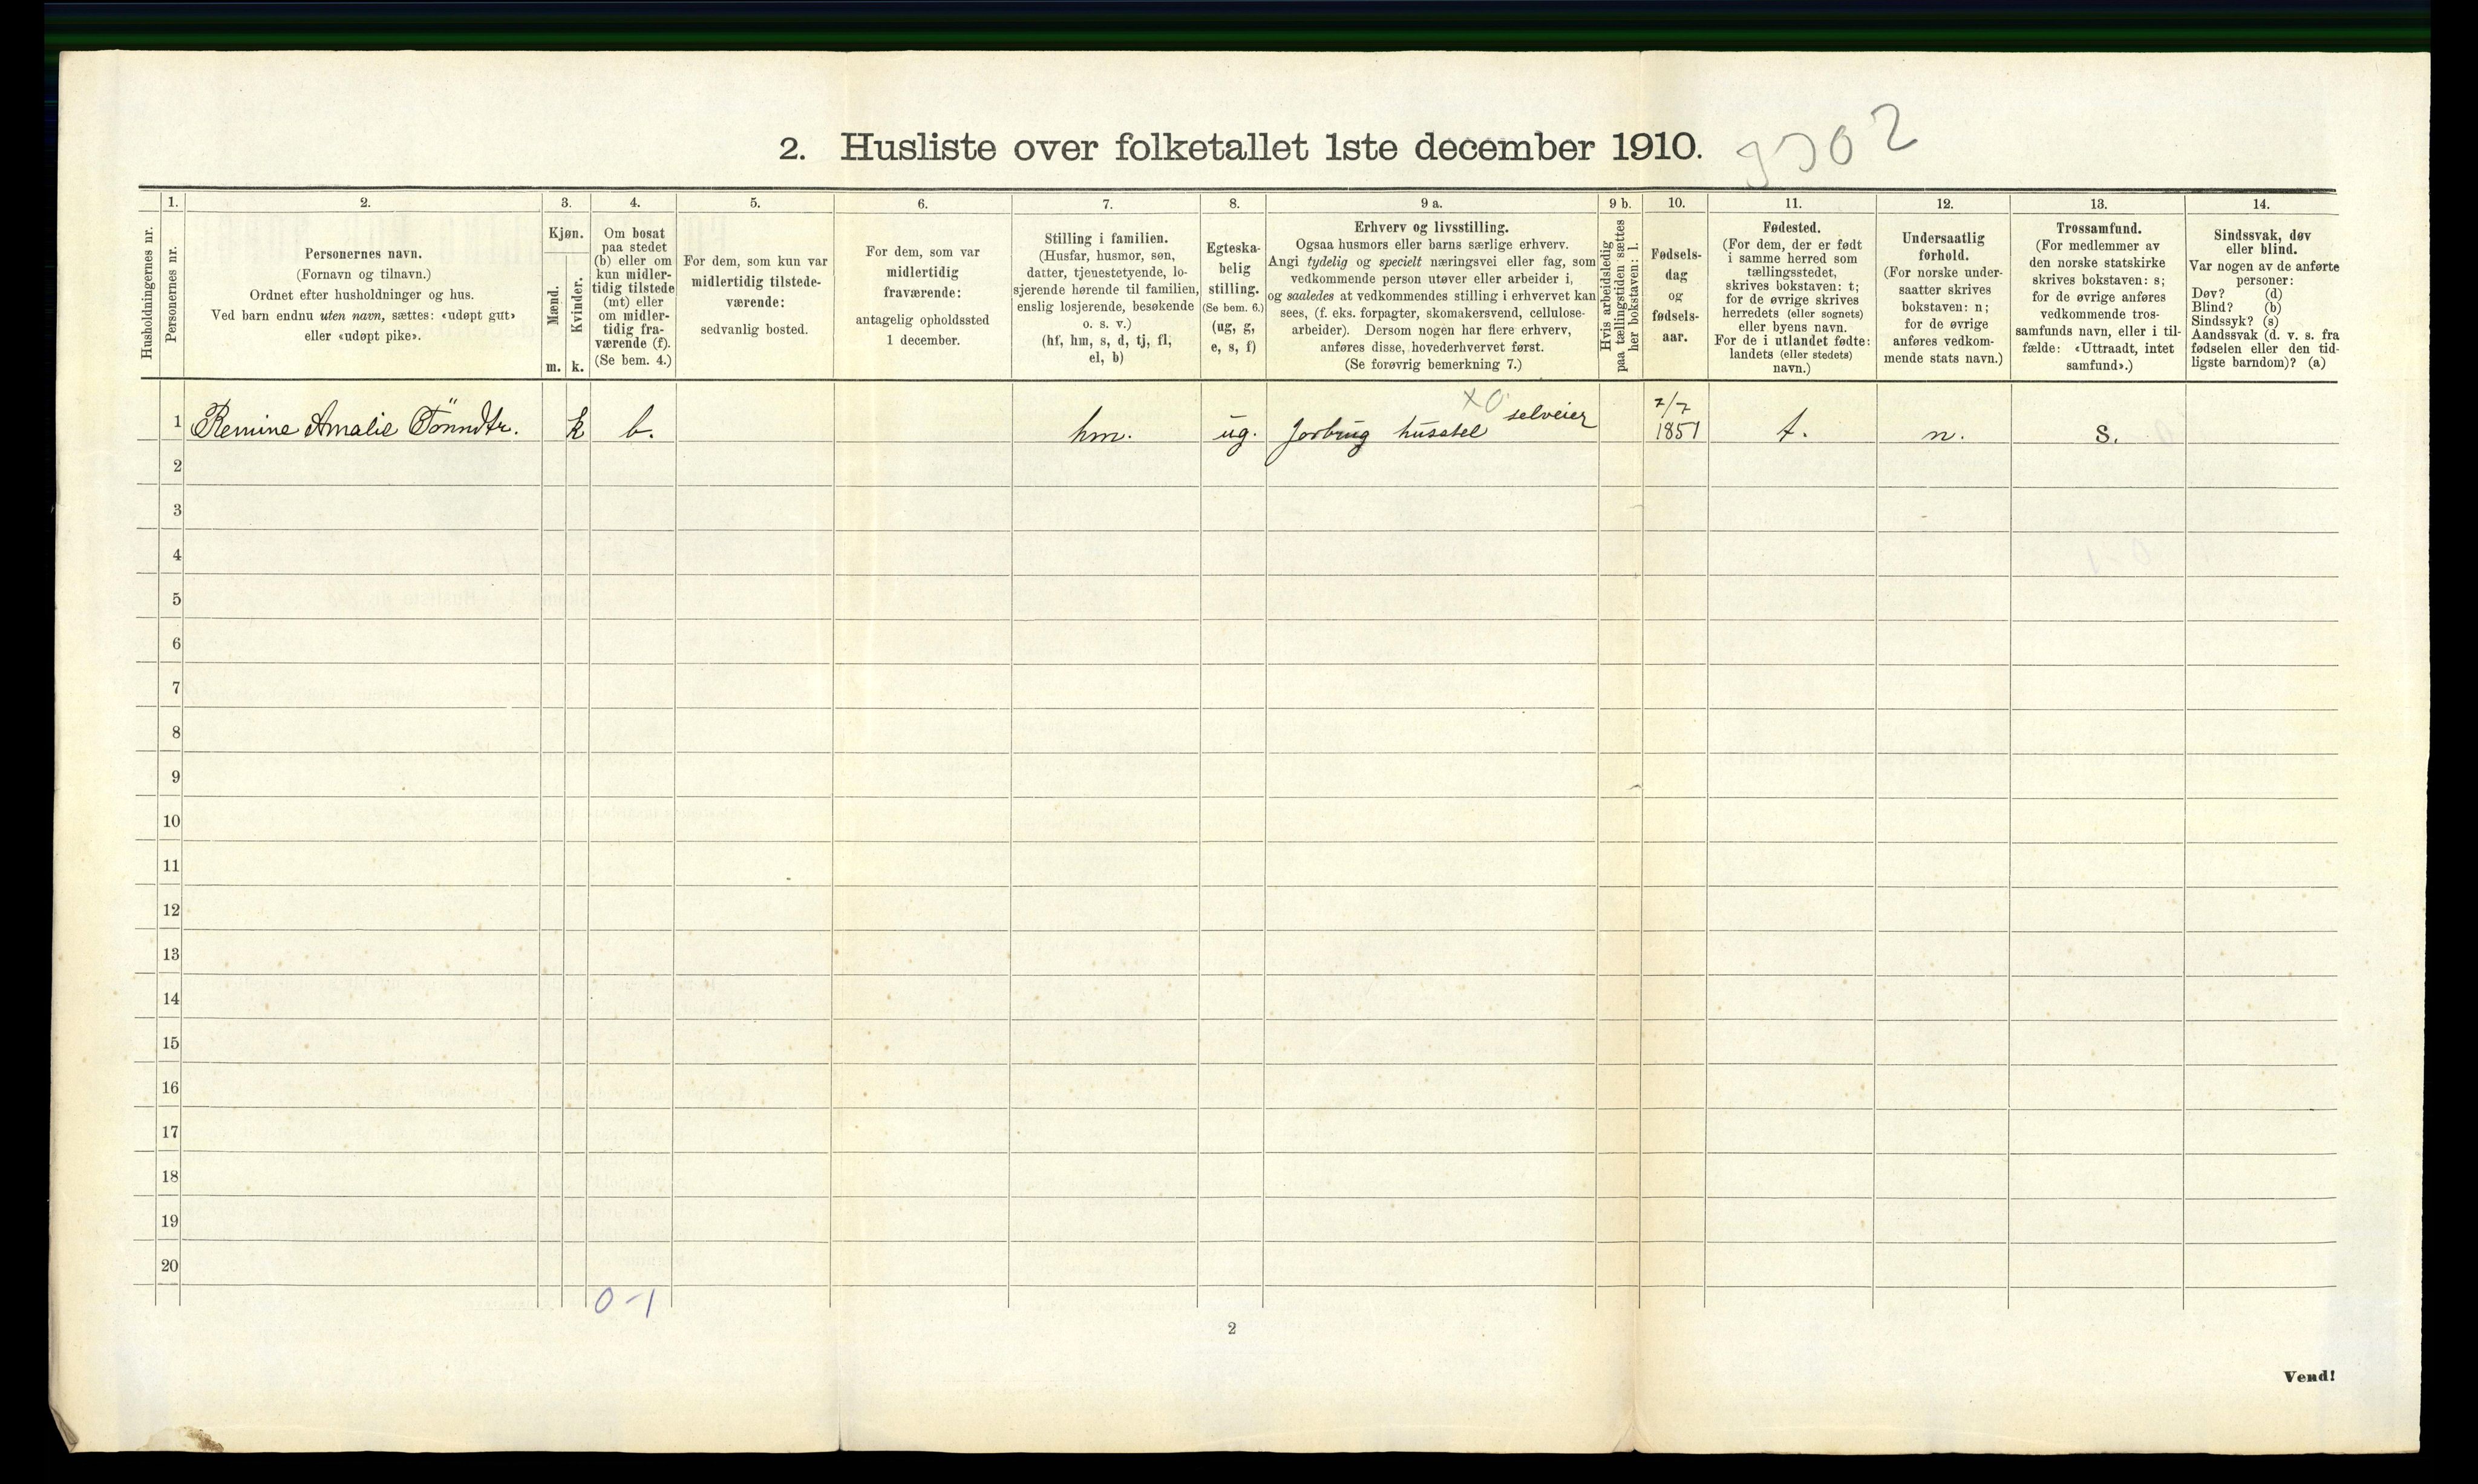 2. Husliste over folketallet 1ste december 1910.
Husholdningernes nr.
1.
Personernes nr.
2.
Personernes navn.
(Fornavn og tilnavn.)
Ordnet efter husholdninger og hus.
Ved barn endnu uten navn, sættes: «udøpt gut»
eller «udøpt pike».
3.
Kjøn.
Mænd.
Kvinder.
m.
k.
4.
Om bosat
paa stedet
(b) eller om
kun midler-
tidig tilstede
(mt) eller
om midler-
tidig fra-
værende (f).
(Se bem. 4.)
5.
For dem, som kun var
midlertidig tilstede-
værende:
sedvanlig bosted.
6.
For dem, som var
midlertidig
fraværende:
antagelig opholdssted
1 december.
7.
Stilling i familien.
(Husfar, husmor, søn,
datter, tjenestetyende, lo-
sjerende hørende til familien,
enslig losjerende, besøkende
o. s. v.)
(hf, hm, s, d, tj, fl,
el, b)
8.
Egteska-
belig
stilling.
(Se bem. 6.)
(ug, g,
e, s, f)
9 a.
Erhverv og livsstilling.
Ogsaa husmors eller barns særlige erhverv.
Angi tydelig og specielt næringsvei eller fag, som
vedkommende person utøver eller arbeider i,
og saaledes at vedkommendes stilling i erhvervet kan
sees, (f. eks. forpagter, skomakersvend, cellulose-
arbeider). Dersom nogen har flere erhverv,
anføres disse, hovederhvervet først.
(Se forøvrig bemerkning 7.)
9 b.
Hvis arbeidsledig
paa tællingstiden sættes
her bokstaven: l.
10.
Fødsels-
dag
og
fødsels-
aar.
11.
Fødested.
(For dem, der er født
i samme herred som
tællingsstedet,
skrives bokstaven: t;
for de øvrige skrives
herredets (eller sognets)
eller byens navn.
For de i utlandet fødte:
landets (eller stedets)
navn.)
12.
Undersaatlig
forhold.
(For norske under-
saatter skrives
bokstaven: n;
for de øvrige
anføres vedkom-
mende stats navn.)
13.
Trossamfund.
(For medlemmer av
den norske statskirke
skrives bokstaven: s;
for de øvrige anføres
vedkommende tros-
samfunds navn, eller i til-
fælde: «Uttraadt, intet
samfund».)
14.
Sindssvak, døv
eller blind.
Var nogen av de anførte
personer:
Døv? (d)
Blind? (b)
Sindssyk? (s)
Aandssvak (d. v. s. fra
fødselen eller den tid-
ligste barndom)? (a)
1 Remine Amalie Tönndtr. k b. hm. ug. Jorbrug husstel selveier 7/7 1851 t. n. s.
2
3
4
5
6
7
8
9
10
11
12
13
14
15
16
17
18
19
20
0-1
2
Vend!